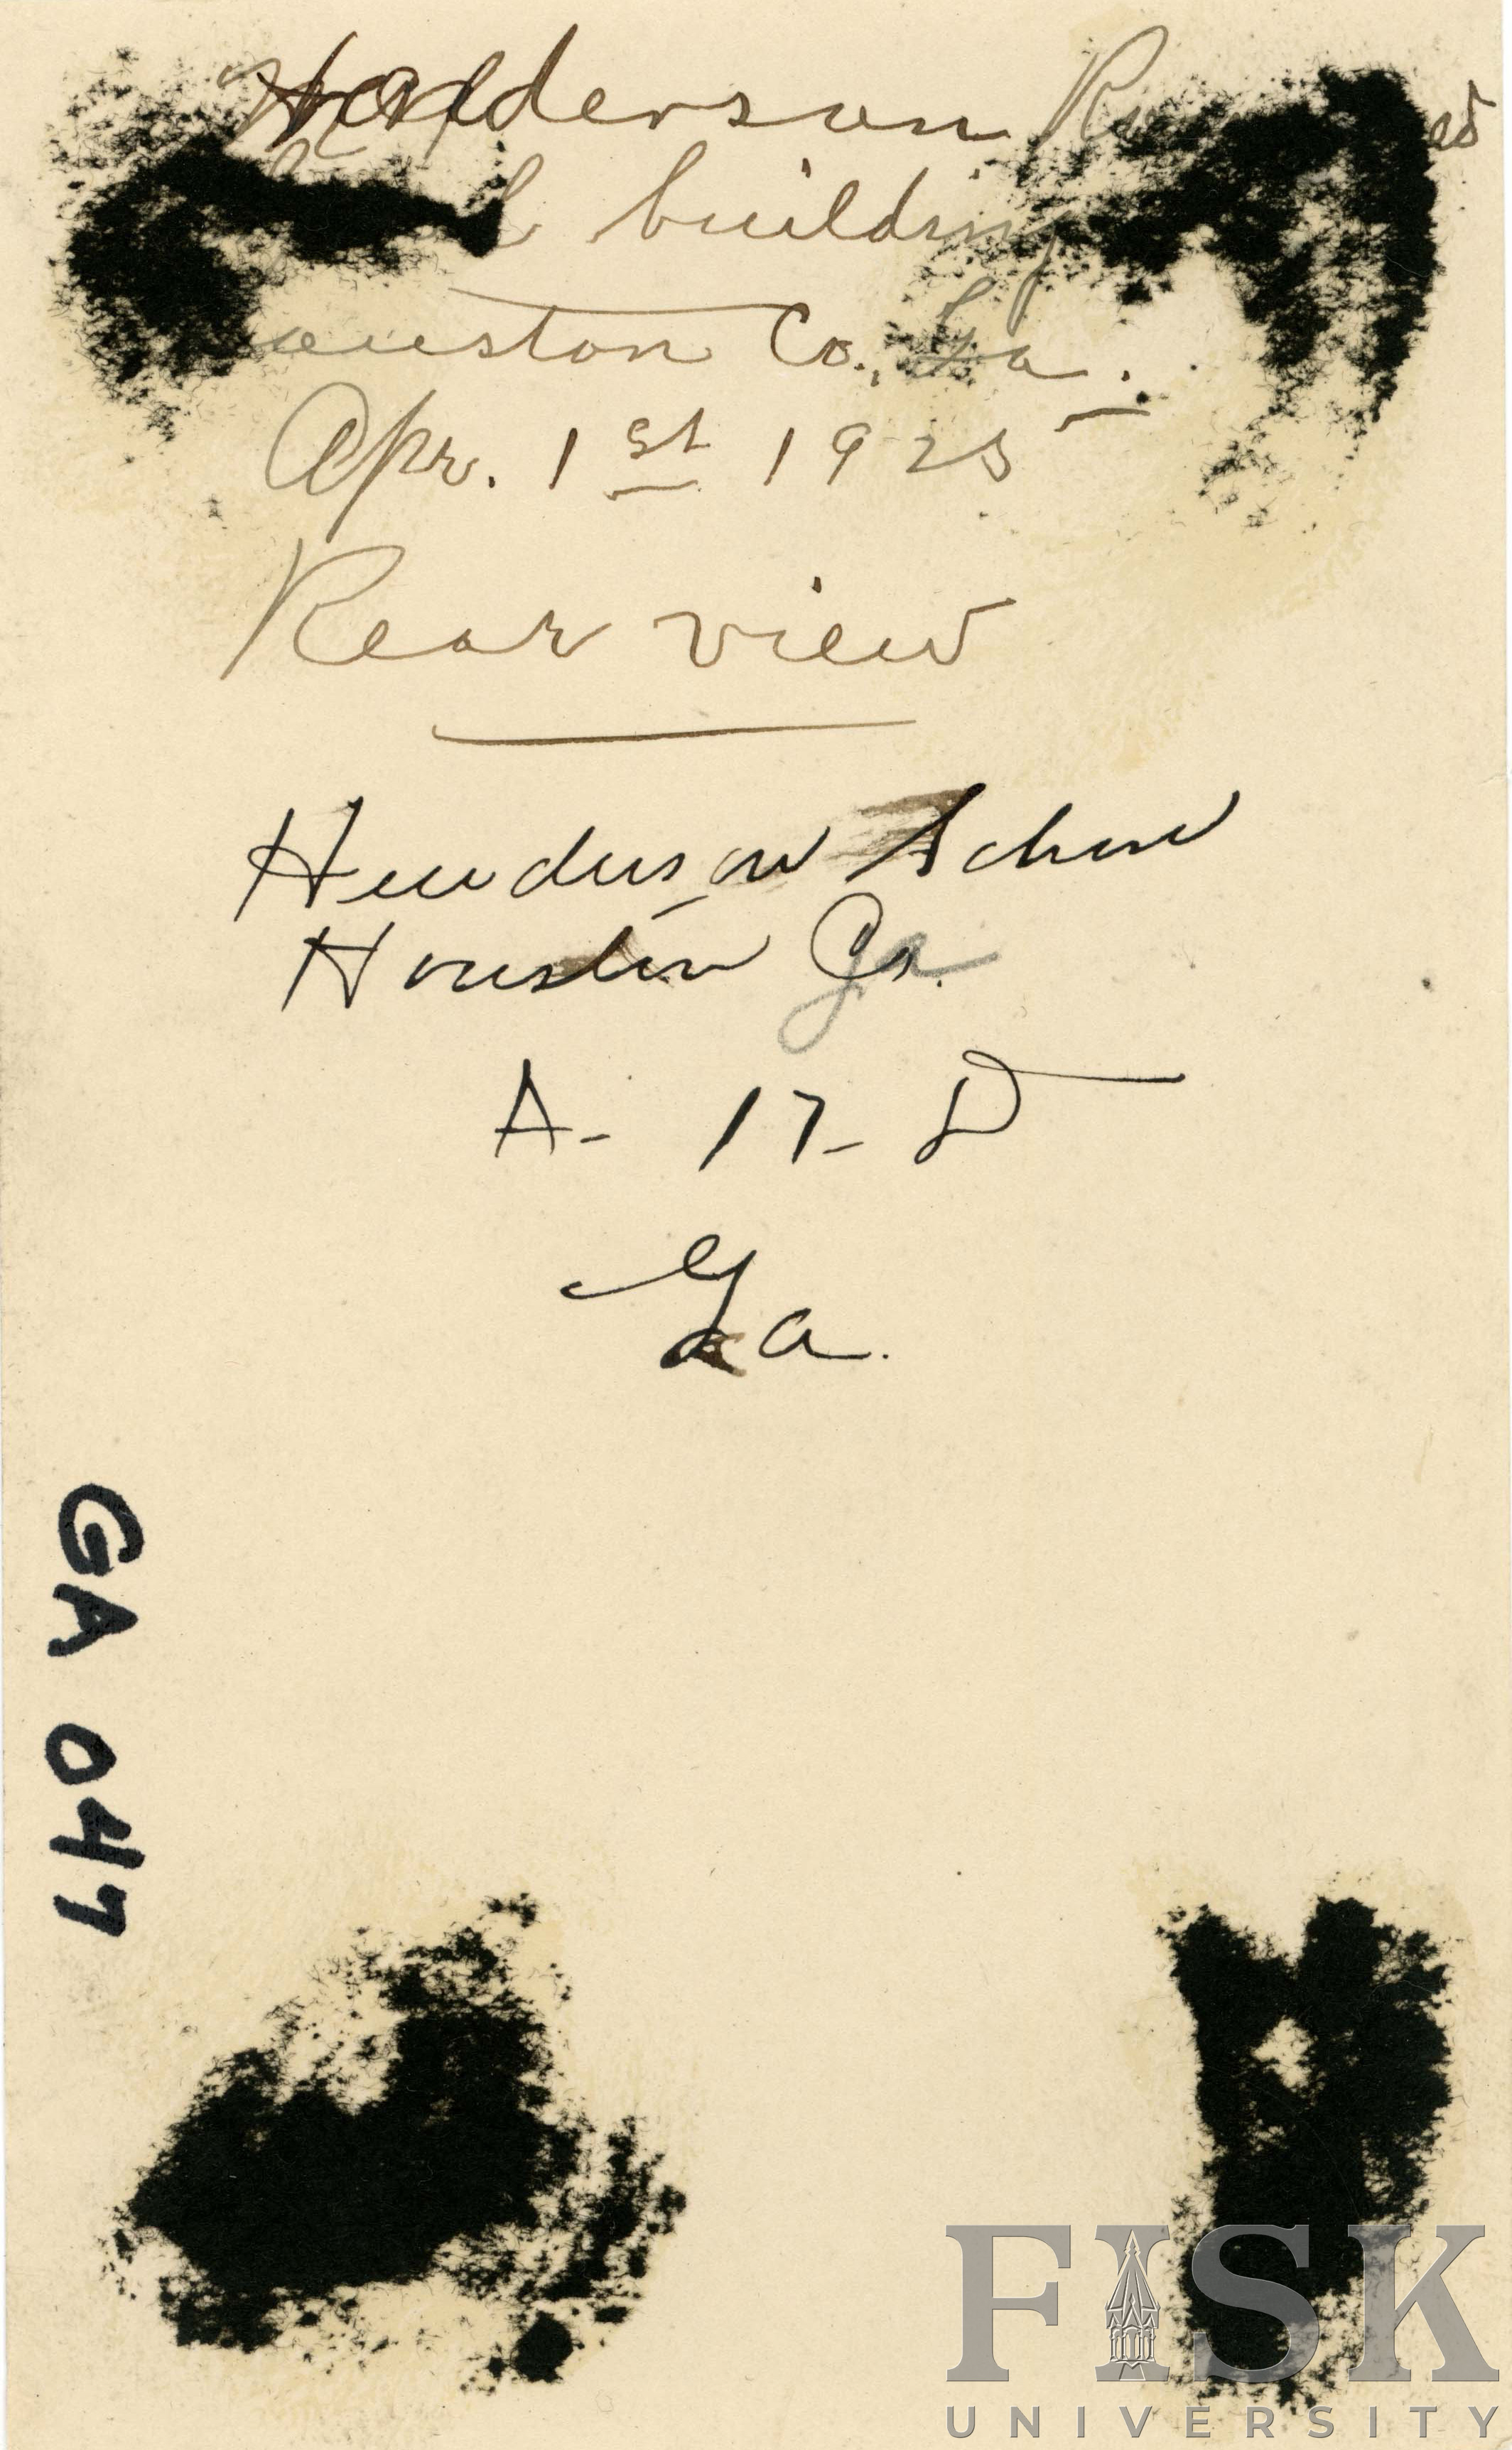 Henderson
building
Houston Co., Ga.
Apr. 1st 1925
Rear view
Henderson School
Houston Co. Ga
A- 17- D
Ga.
GA 047
FISK
UNIVERSITY